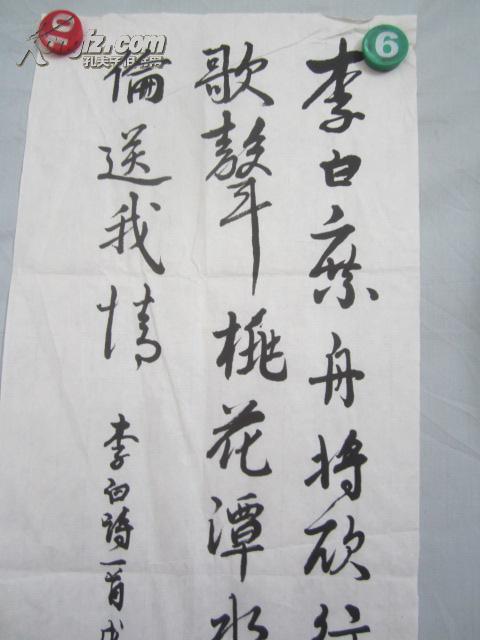 李白乘舟将欲行
歌聲桃花潭水
倫送我情
李白詩一首戊
6
孔夫子旧书网